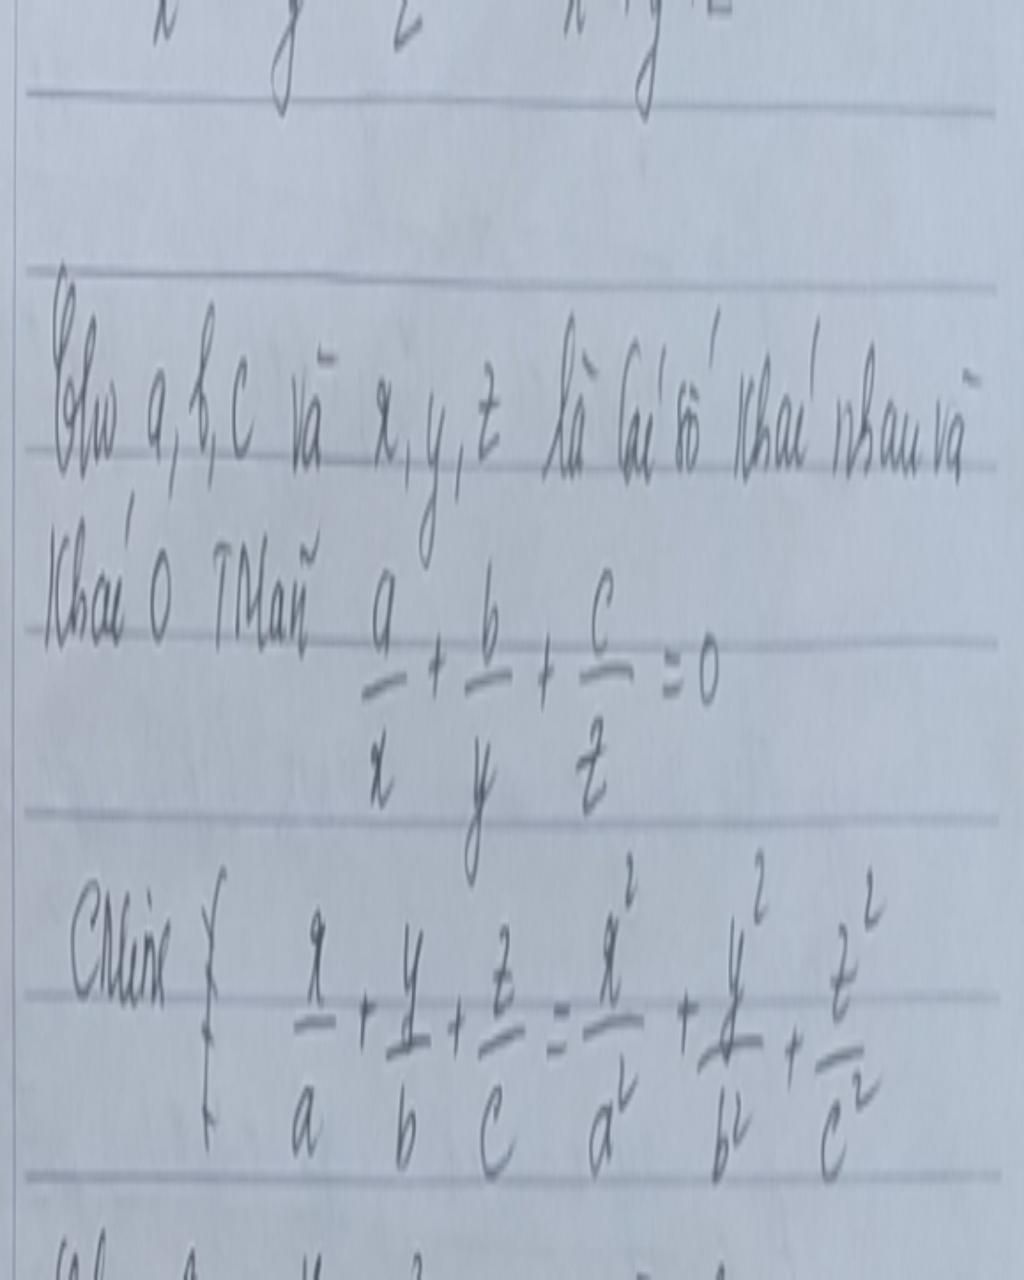 Cho a, b, c và x, y, z là các số khác nhau và
khác 0 TMãn a/x + b/y + c/z = 0
CMinh { x/a + y/b + z/c = x²/a² + y²/b² + z²/c²